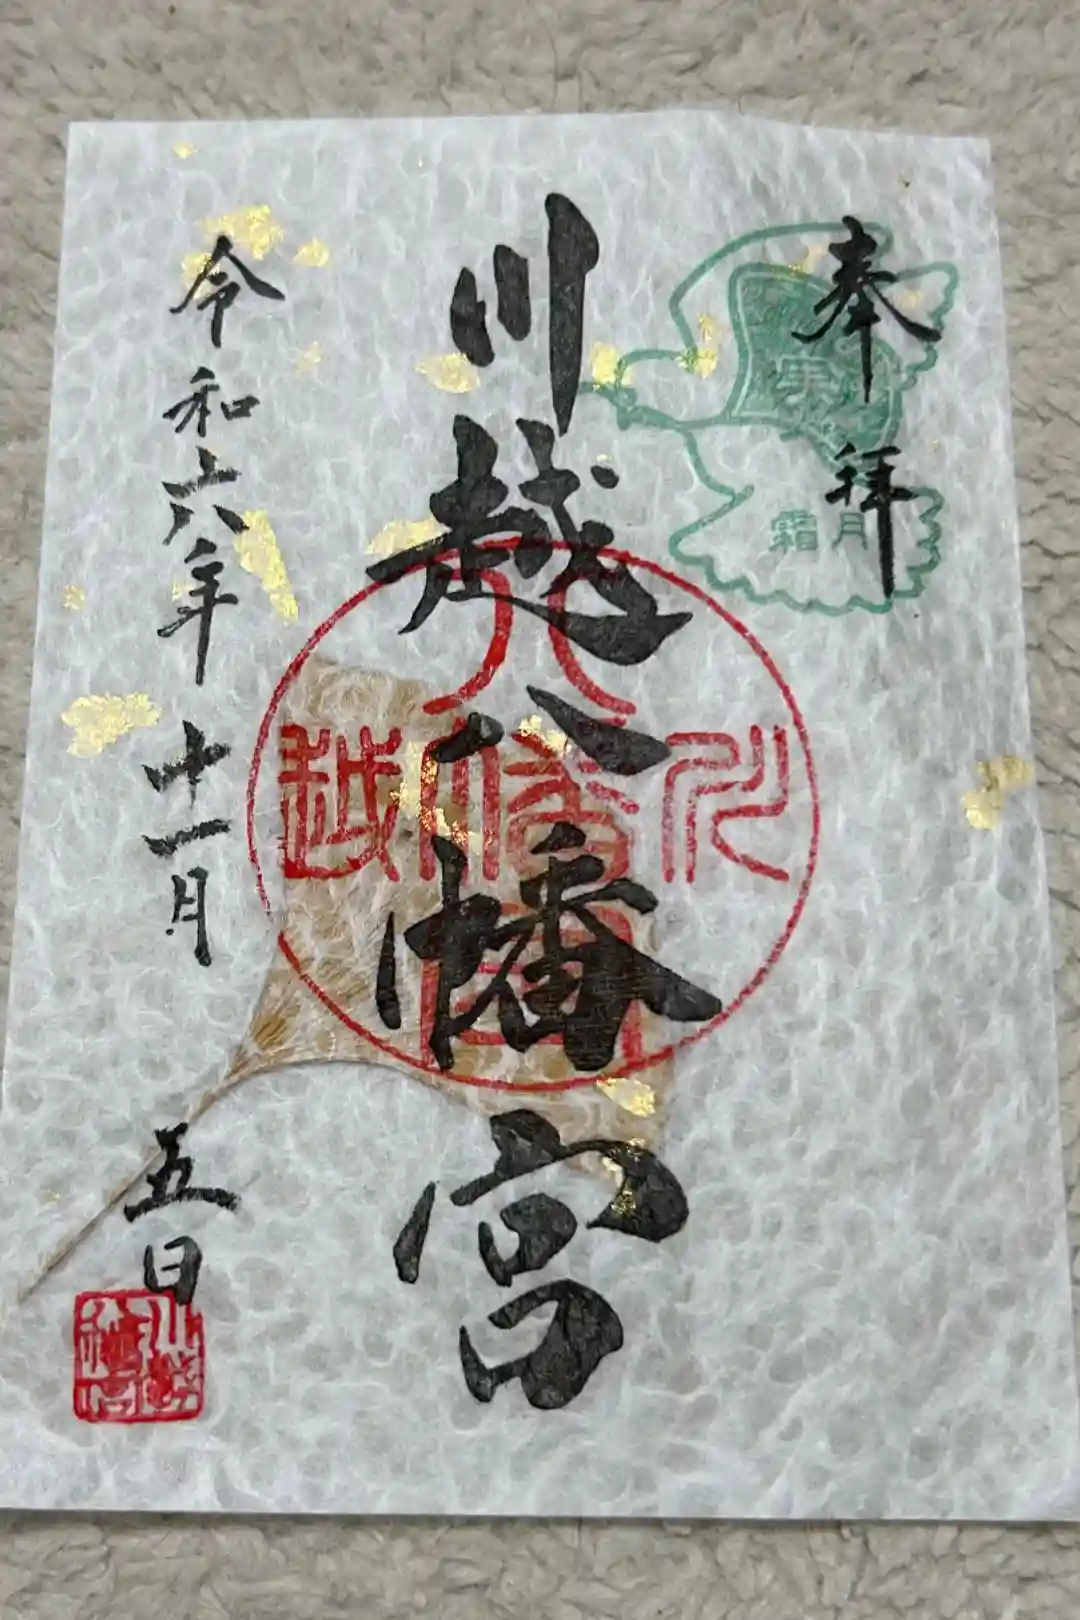 奉拝
霜月
川越八幡宮
川越八幡宮
令和六年十一月五日